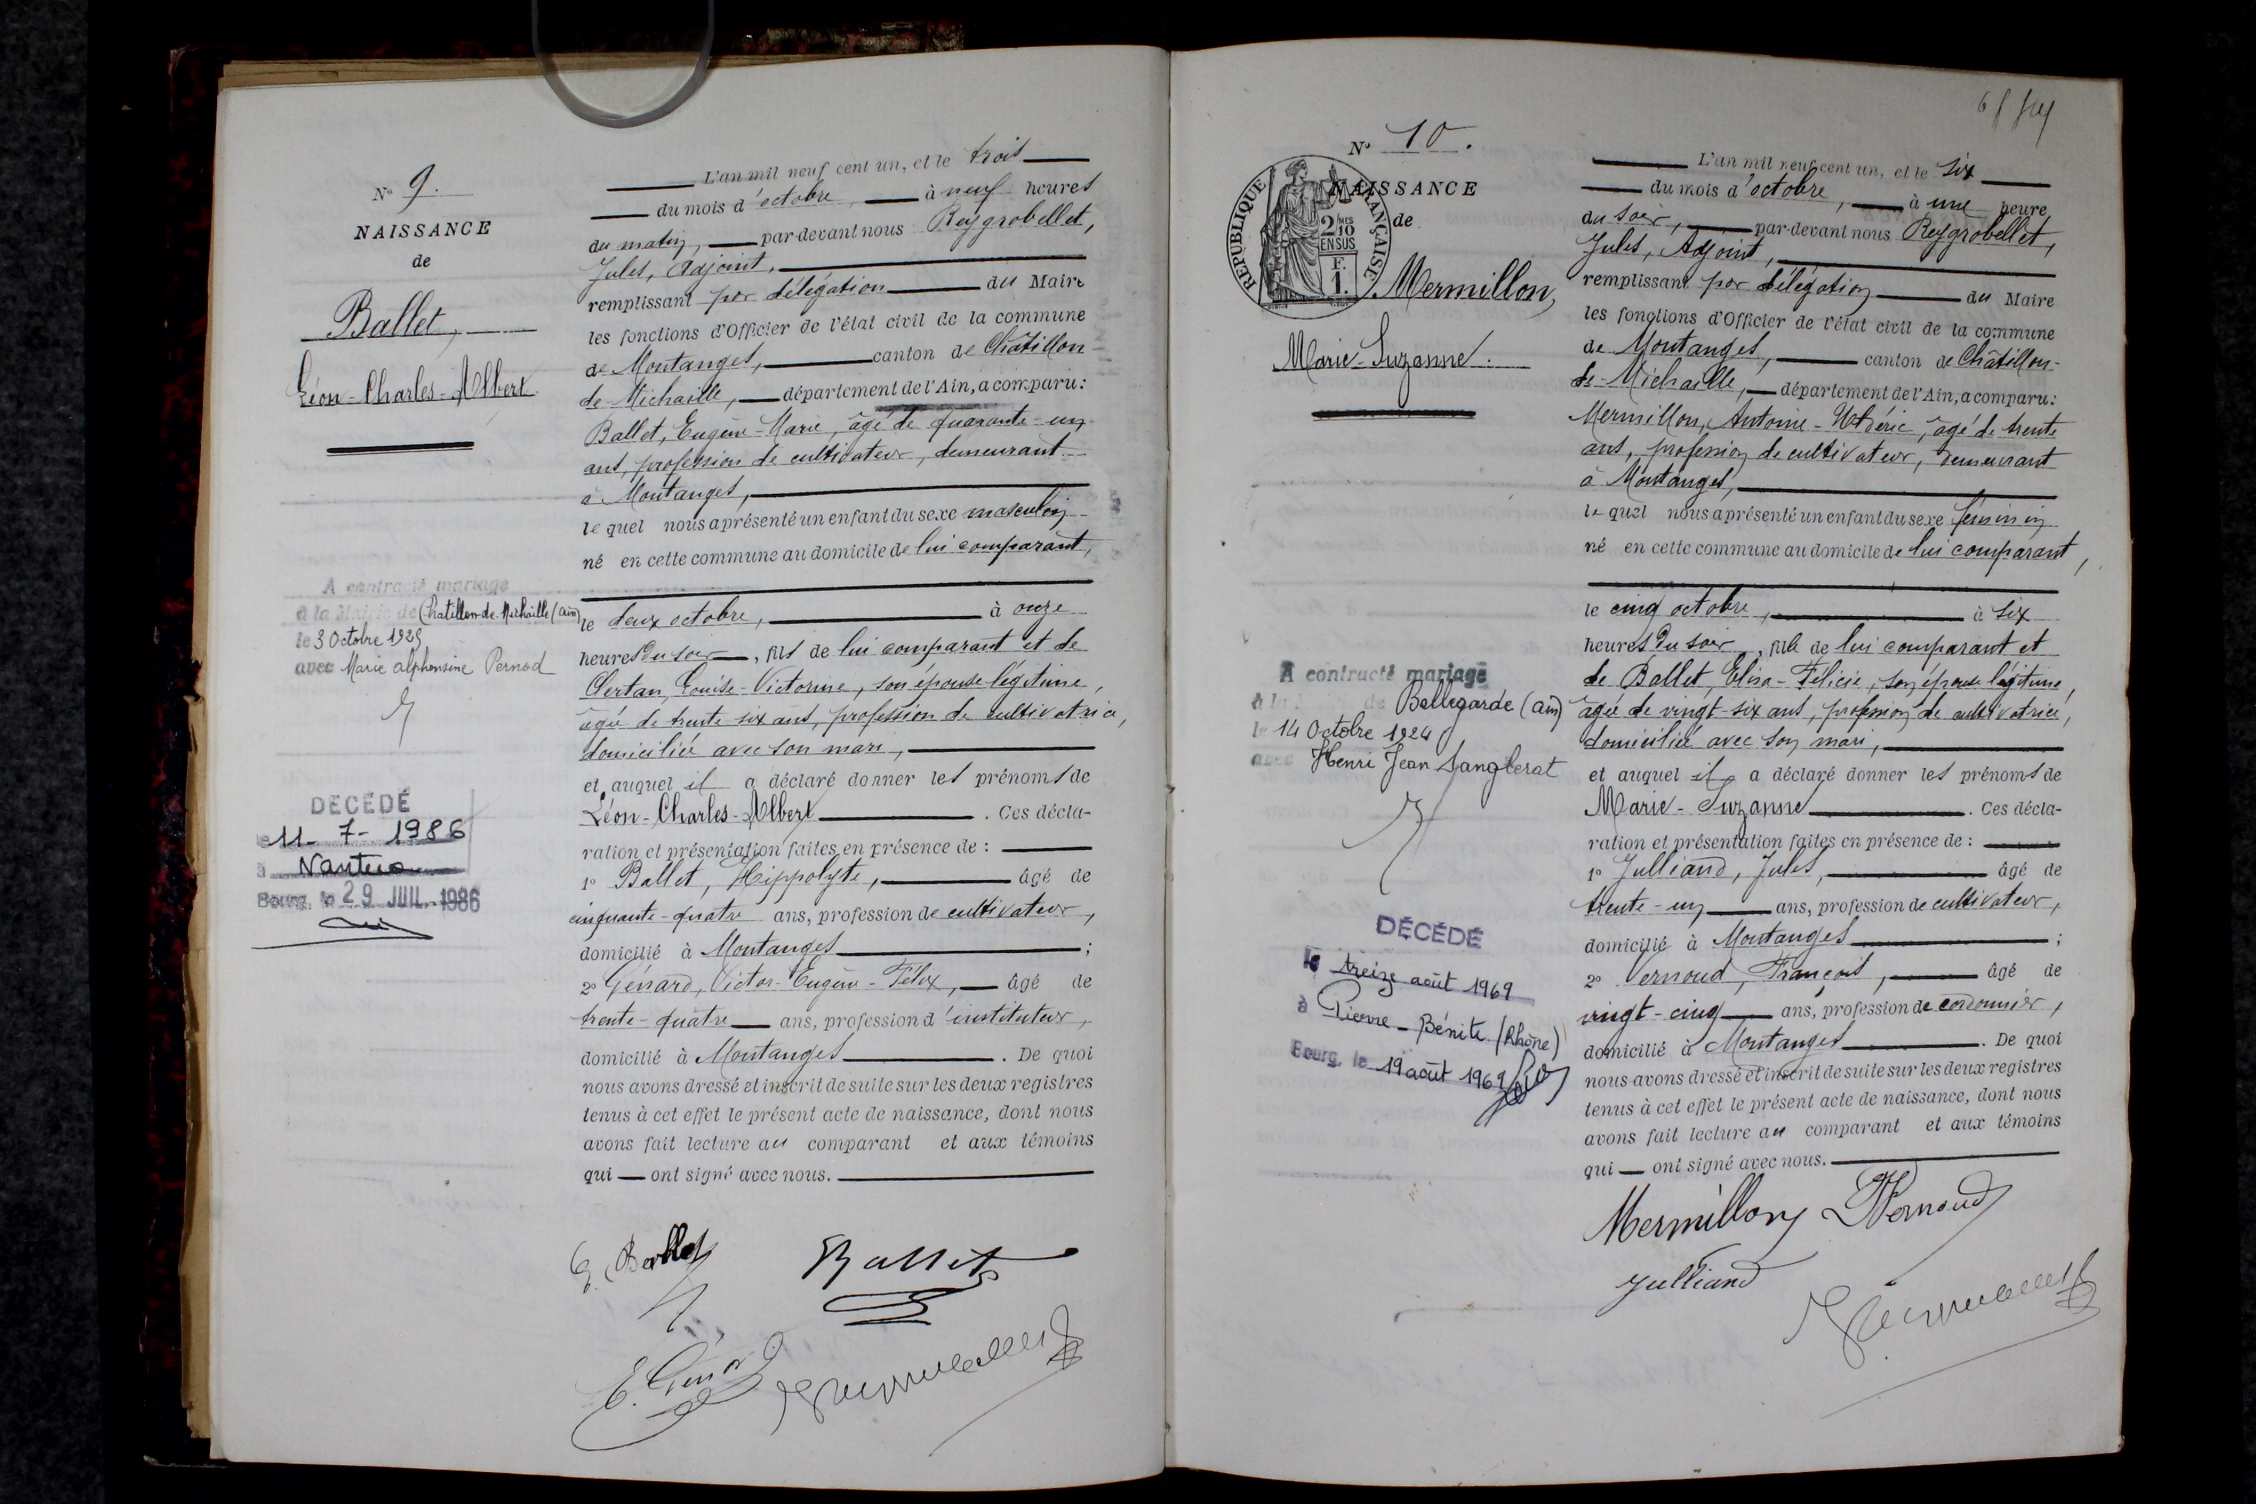 N° 9.
NAISSANCE
de
Ballet,
Léon-Charles-Albert
A contracté mariage
à la Mairie de Chatillon-de-Michaille (Ain)
le 3 Octobre 1925
avec Marie alphonsine Pernod
DÉCÉDÉ
le 11-7-1986
à Nantua
Bourg, le 29 JUIL. 1986
L'an mil neuf cent un, et le trois
du mois d'octobre, à neuf heures
du matin, par-devant nous Reygrobellet,
Jules, Adjoint,
remplissant par délégation du Maire
les fonctions d'Officier de l'état civil de la commune
de Montanges, canton de Châtillon-
de-Michaille, département de l'Ain, a comparu:
Ballet, Eugène-Marie, âgé de quarante-un
ans, profession de cultivateur, demeurant
à Montanges,
lequel nous a présenté un enfant du sexe masculin
né en cette commune au domicile de lui comparant,
le deux octobre, à onze
heures du soir, fils de lui comparant et de
Clertan, Louise-Victorine, son épouse légitime,
âgée de trente six ans, profession de cultivatrice,
domiciliée avec son mari,
et auquel il a déclaré donner les prénoms de
Léon-Charles-Albert. Ces décla-
ration et présentation faites en présence de :
1° Ballet, Hippolyte, âgé de
cinquante-quatre ans, profession de cultivateur,
domicilié à Montanges ;
2° Génard, Victor-Eugène-Félix, âgé de
trente-quatre ans, profession d'instituteur,
domicilié à Montanges. De quoi
nous avons dressé et inscrit de suite sur les deux registres
tenus à cet effet le présent acte de naissance, dont nous
avons fait lecture au comparant et aux témoins
qui ont signé avec nous.
E. Ballet Ballet
E. Génard
N° 10.
NAISSANCE
de
RÉPUBLIQUE FRANÇAISE
2 MES
10
EN SUS
F.
1.
Mermillon,
Marie-Suzanne.
A contracté mariage
à la de Bellegarde (Ain)
le 14 Octobre 1924
avec Henri Jean Sanglerat
DÉCÉDÉ
le treize août 1969
à Pierre-Bénite (Rhône)
Bourg, le 19 août 1969
L'an mil neuf cent un, et le six
du mois d'octobre, à une heure
du soir, par-devant nous Reygrobellet,
Jules, Adjoint,
remplissant par délégation du Maire
les fonctions d'Officier de l'état civil de la commune
de Montanges, canton de Châtillon-
de-Michaille, département de l'Ain, a comparu:
Mermillon, Antoine-Uldéric, âgé de trente
ans, profession de cultivateur, demeurant
à Montanges,
lequel nous a présenté un enfant du sexe féminin
né en cette commune au domicile de lui comparant,
le cinq octobre, à six
heures du soir, fille de lui comparant et
de Ballet, Elisa-Félicie, son épouse légitime,
âgée de vingt-six ans, profession de cultivatrice,
domiciliée avec son mari,
et auquel il a déclaré donner les prénoms de
Marie-Suzanne. Ces décla-
ration et présentation faites en présence de :
1° Julliand, Jules, âgé de
trente-un ans, profession de cultivateur,
domicilié à Montanges ;
2° Vernoud, François, âgé de
vingt-cinq ans, profession de cordonnier,
domicilié à Montanges. De quoi
nous avons dressé et inscrit de suite sur les deux registres
tenus à cet effet le présent acte de naissance, dont nous
avons fait lecture au comparant et aux témoins
qui ont signé avec nous.
Mermillon Vernoud
Julliand